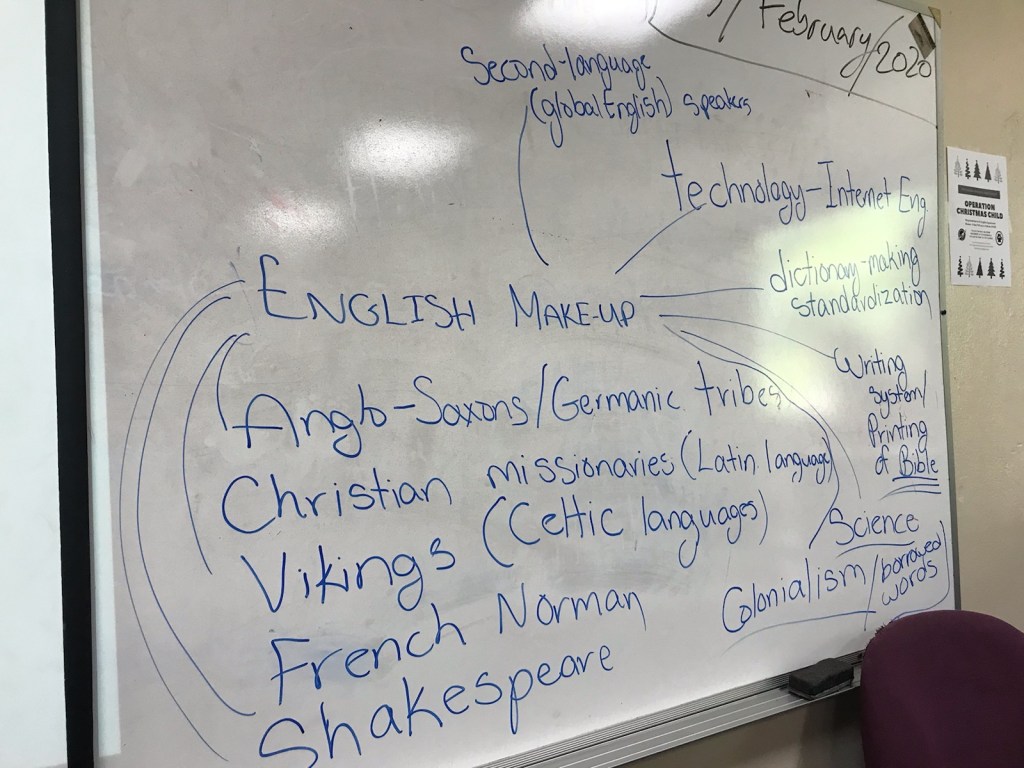 /February/2020
Second-language
(global English) speakers
technology-Internet Eng.
dictionary-making
standardization
ENGLISH MAKE-UP
Writing
system/
Printing
of Bible
Anglo-Saxons/Germanic tribes
Christian missionaries (Latin language)
Vikings (Celtic languages)
French Norman
Shakespeare
Science
Colonialism/borrowed
words
OPERATION
CHRISTMAS CHILD